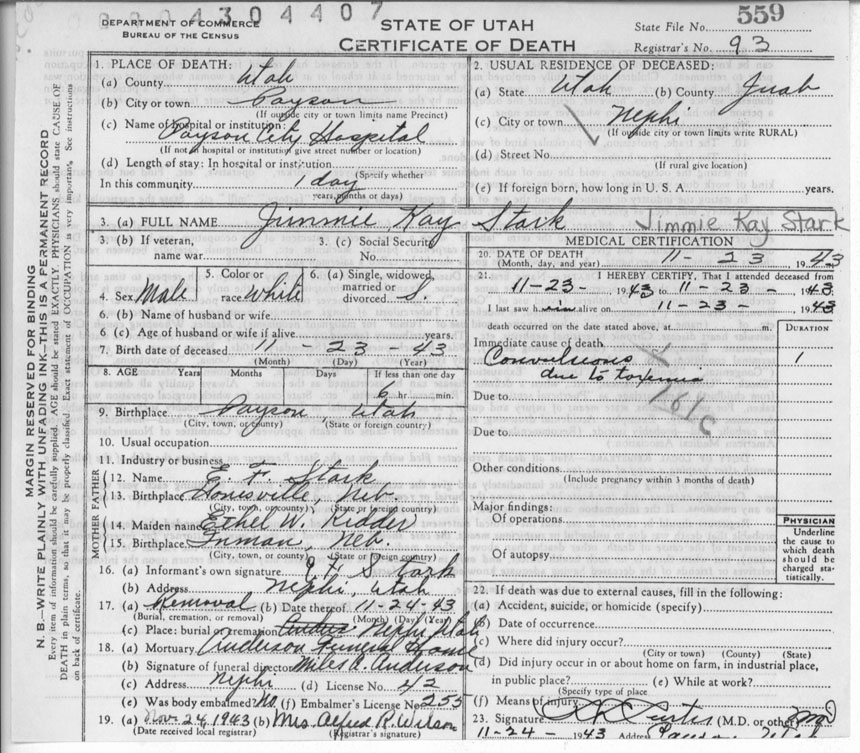 04304407
DEPARTMENT OF COMMERCE
BUREAU OF THE CENSUS
STATE OF UTAH
CERTIFICATE OF DEATH
State File No. 559
Registrar's No. 93
MARGIN RESERVED FOR BINDING
N. B.—WRITE PLAINLY WITH UNFADING INK—THIS IS A PERMANENT RECORD
Every item of information should be carefully supplied. AGE should be stated EXACTLY. PHYSICIANS should state CAUSE OF
DEATH in plain terms, so that it may be properly classified. Exact statement of OCCUPATION is very important. See instructions
on back of certificate.
1. PLACE OF DEATH:
(a) County Utah
(b) City or town Payson
(If outside city or town limits name Precinct)
(c) Name of hospital or institution:
Payson City Hospital
(If not hospital or institution give number or location)
(d) Length of stay: In hospital or institution
(Specify whether
In this community 1 day
years, months or days)
2. USUAL RESIDENCE OF DECEASED:
(a) State Utah (b) County Juab
(c) City or town Nephi
(If outside city or town limits write RURAL)
(d) Street No.
(If rural give location)
(e) If foreign born, how long in U. S. A. years.
3. (a) FULL NAME Jimmie Kay Stark Jimmie Kay Stark
3. (b) If veteran,
name war
3. (c) Social Security
No.
4. Sex Male
5. Color or
race White
6. (a) Single, widowed,
married or
divorced S.
6. (b) Name of husband or wife
6. (c) Age of husband or wife if alive years.
7. Birth date of deceased 11 - 23 - 43
(Month) (Day) (Year)
8. AGE Years Months Days If less than one day
6 hr. min.
9. Birthplace Payson, Utah
(City, town, or county) (State or foreign country)
10. Usual occupation
11. Industry or business
FATHER
12. Name E. F. Stark
13. Birthplace Neb.
(City, town, or county) (State or foreign country)
MOTHER
14. Maiden name Ethel W. Kidder
15. Birthplace Inman, Neb.
(City, town, or county) (State or foreign country)
16. (a) Informant's own signature F. Stark
(b) Address Nephi, Utah
17. (a) Removal (b) Date thereof 11-24-43
(Burial, cremation, or removal) (Month) (Day) (Year)
(c) Place: burial or cremation Nephi Utah
18. (a) Mortuary Anderson Funeral Home
(b) Signature of funeral director Miles A. Anderson
(c) Address Nephi (d) License No. 42
(e) Was body embalmed? No (f) Embalmer's License No. 255
19. (a) Nov. 24, 1943 (b) Mrs. Alfred R. Wilson
(Date received local registrar) (Registrar's signature)
MEDICAL CERTIFICATION
20. DATE OF DEATH 11 - 23 1943
(Month, day, and year)
21. I HEREBY CERTIFY, That I attended deceased from
11-23- 1943 to 11-23- 1943
I last saw him alive on 11-23- 1943
death occurred on the date stated above, at m.
DURATION
Immediate cause of death
Convulsions 1
due to toxemia
Due to
161c
Due to
Other conditions
(Include pregnancy within 3 months of death)
Major findings:
Of operations
Of autopsy
PHYSICIAN
Underline
the cause to
which death
should be
charged sta-
tistically.
22. If death was due to external causes, fill in the following:
(a) Accident, suicide, or homicide (specify)
(b) Date of occurrence
(c) Where did injury occur?
(City or town) (County) (State)
(d) Did injury occur in or about home on farm, in industrial place,
in public place? (e) While at work?
(Specify type of place
(f) Means of injury
23. Signature Curtis (M.D. or other) MD
11-24- 1943 Address Payson Utah